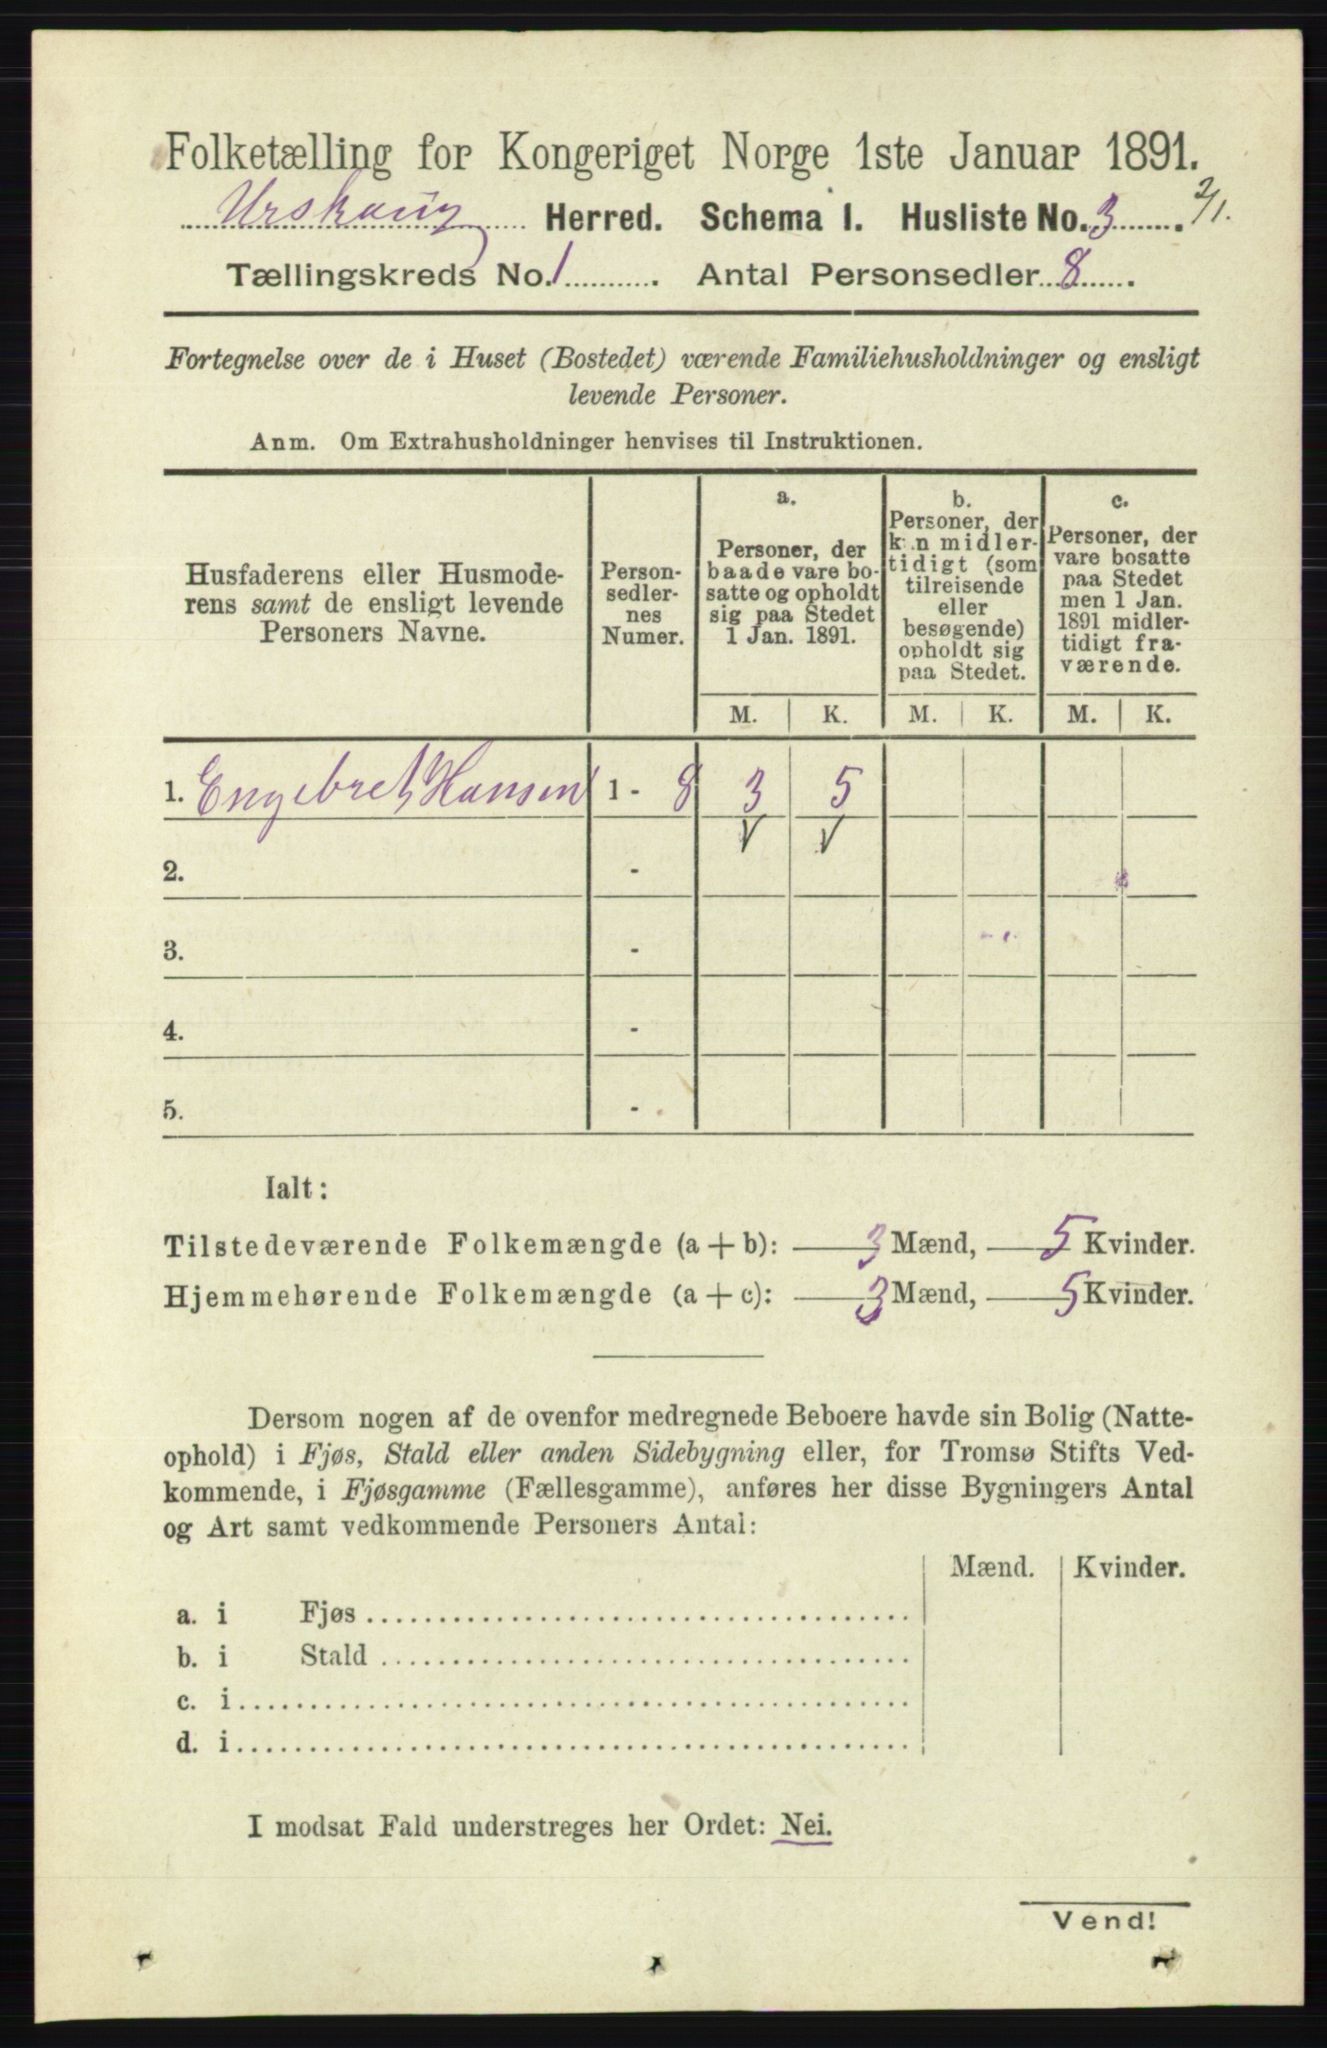 Folketælling for Kongeriget Norge 1ste Januar 1891.
Urskoug Herred. Schema I. Husliste No. 3. 2/1.
Tællingskreds No. 1. Antal Personsedler 8.
Fortegnelse over de i Huset (Bostedet) værende Familiehusholdninger og ensligt
levende Personer.
Anm. Om Extrahusholdninger henvises til Instruktionen.
Husfaderens eller Husmode-
rens samt de ensligt levende
Personers Navne.
Person-
sedler-
nes
Numer.
a.
Personer, der
baade vare bo-
satte og opholdt
sig paa Stedet
1 Jan. 1891.
b.
Personer, der
kun midler-
tidigt (som
tilreisende
eller
besøgende)
opholdt sig
paa Stedet.
c.
Personer, der
vare bosatte
paa Stedet
men 1 Jan.
1891 midler-
tidigt fra-
værende.
M. K. M. K. M. K.
1. Engebret Hansen 1 - 8 3 5
2. -
3. -
4. -
5. -
Ialt:
Tilstedeværende Folkemængde (a + b): 3 Mænd, 5 Kvinder.
Hjemmehørende Folkemængde (a + c): 3 Mænd, 5 Kvinder.
Dersom nogen af de ovenfor medregnede Beboere havde sin Bolig (Natte-
ophold) i Fjøs, Stald eller anden Sidebygning eller, for Tromsø Stifts Ved-
kommende, i Fjøsgamme (Fællesgamme), anføres her disse Bygningers Antal
og Art samt vedkommende Personers Antal:
Mænd. Kvinder.
a. i Fjøs
b. i Stald
c. i
d. i
I modsat Fald understreges her Ordet: Nei.
Vend!